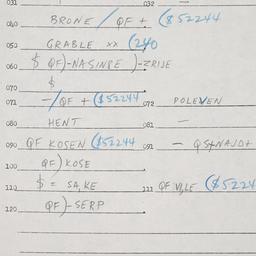 031 032 —
040 BRONE / QF + ($52244
050 GRABLE xx (240
060 $ QF)-NASINBE )-ZRIJE
070 $
071 -/QF + ($52244 072 POLEVEN
080 HENT 081 —
090 QF KOSEN ($52244 091 — QS+NAJD+
100 QF) KOSE
110 $ = SA,KE 111 QF V,LE ($5224
120 QF)-SERP